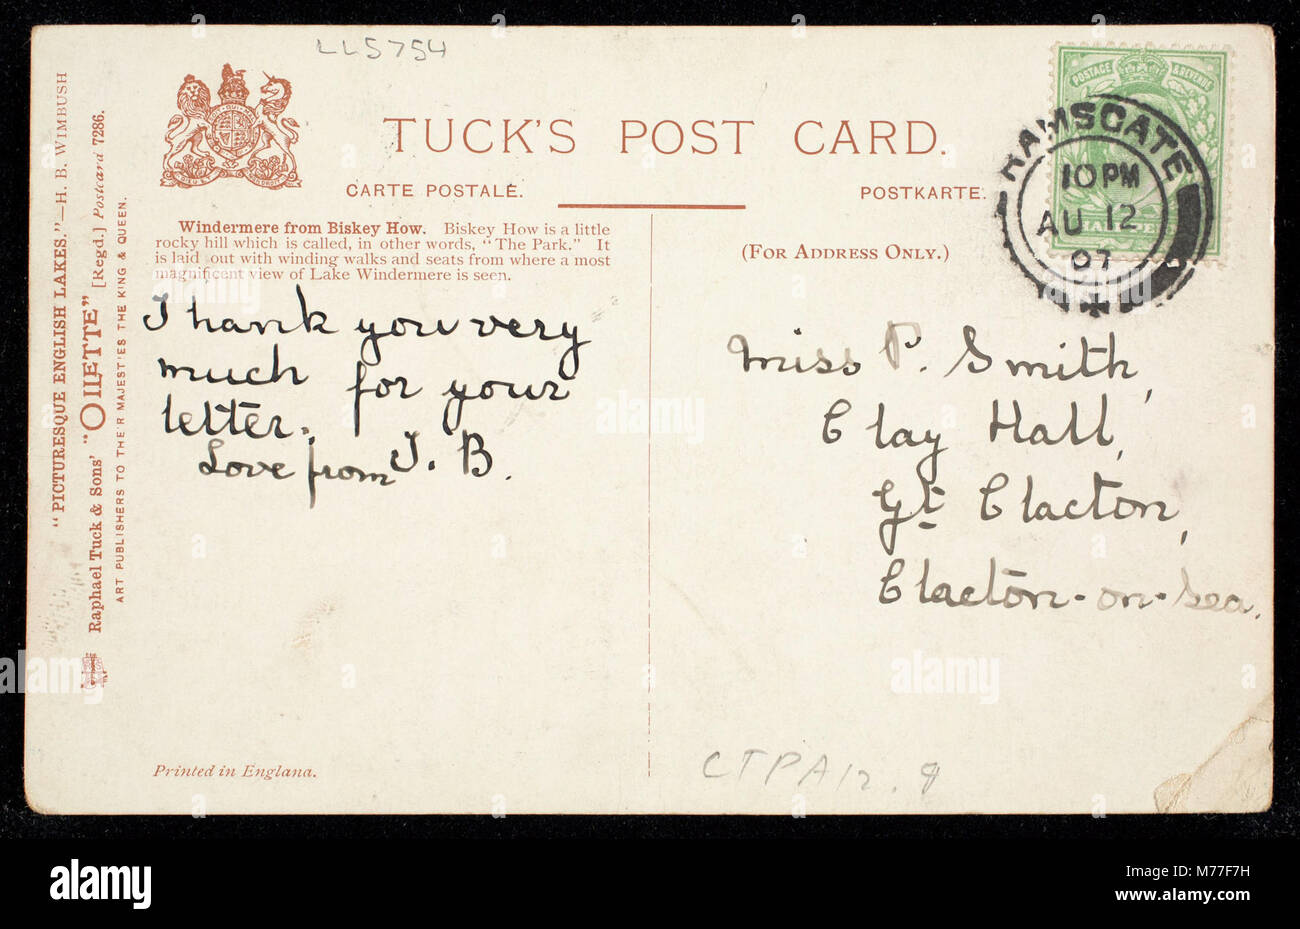 LL5754
TUCK'S POST CARD.
CARTE POSTALE.
POSTKARTE.
Windermere from Biskey How. Biskey How is a little
rocky hill which is called, in other words, "The Park." It
is laid out with winding walks and seats from where a most
magnificent view of Lake Windermere is seen.
(FOR ADDRESS ONLY.)
POSTAGE & REVENUE
RAMSGATE
10 PM
AU 12
07
Thank you very
much for your
letter.
Love from J. B.
Miss P. Smith,
Clay Hall,
Gt Clacton,
Clacton-on-Sea.
"PICTURESQUE ENGLISH LAKES."—H. B. WIMBUSH
Raphael Tuck & Sons' "OILETTE" [Regd.] Postcard 7286.
ART PUBLISHERS TO THEIR MAJESTIES THE KING & QUEEN.
Printed in England.
alamy
alamy
alamy
alamy
alamy
alamy
Image ID: M77F7H
www.alamy.com